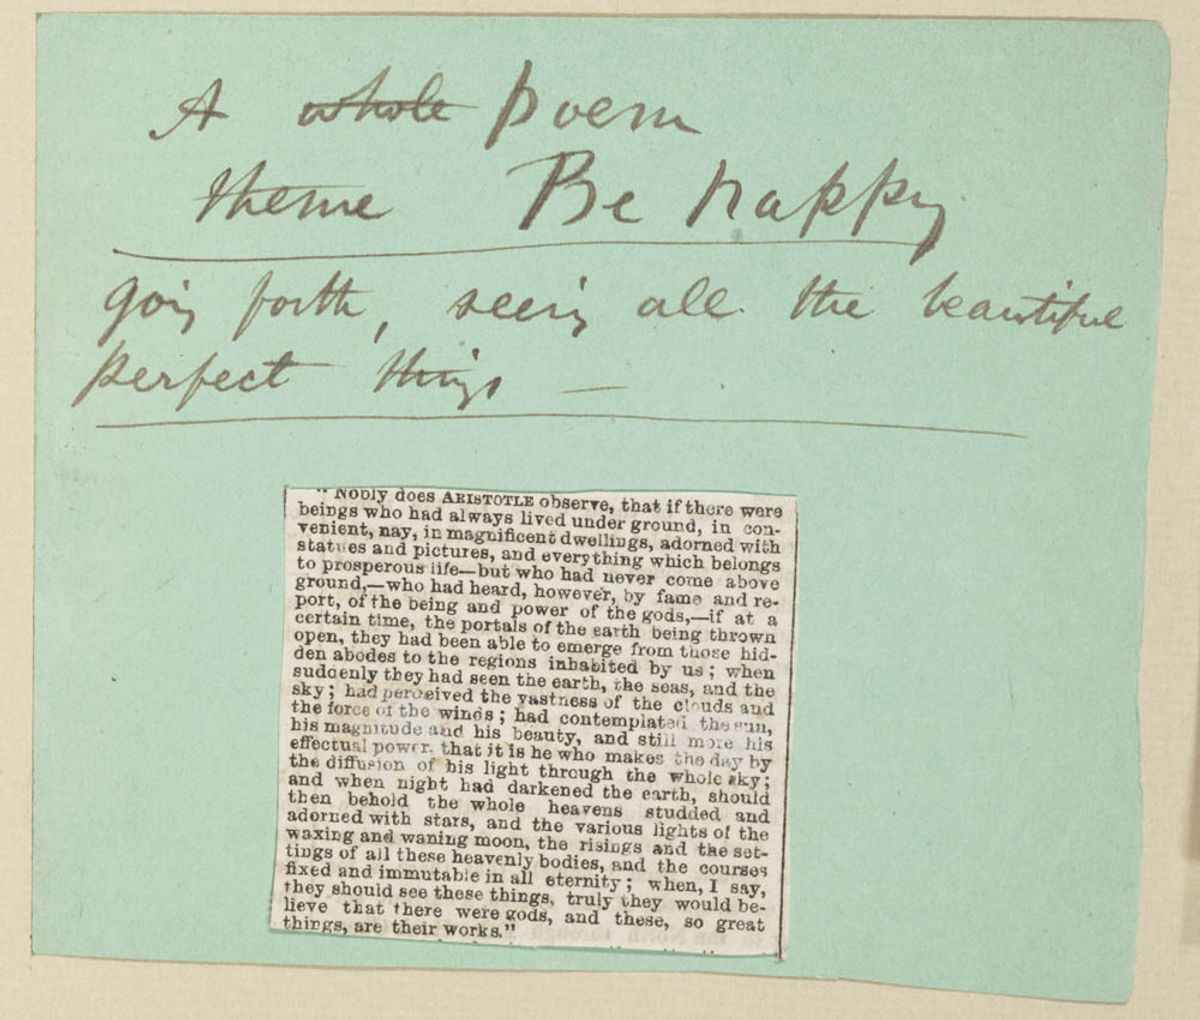 A whole poem
theme Be happy
going forth, seeing all the beautiful
perfect things —
"Nobly does ARISTOTLE observe, that if there were
beings who had always lived under ground, in con-
venient, nay, in magnificent dwellings, adorned with
statues and pictures, and everything which belongs
to prosperous life—but who had never come above
ground,—who had heard, however, by fame and re-
port, of the being and power of the gods,—if at a
certain time, the portals of the earth being thrown
open, they had been able to emerge from those hid-
den abodes to the regions inhabited by us; when
suddenly they had seen the earth, the seas, and the
sky; had perceived the vastness of the clouds and
the force of the winds; had contemplated the sun,
his magnitude and his beauty, and still more his
effectual power, that it is he who makes the day by
the diffusion of his light through the whole sky;
and when night had darkened the earth, should
then behold the whole heavens studded and
adorned with stars, and the various lights of the
waxing and waning moon, the risings and the set-
tings of all these heavenly bodies, and the courses
fixed and immutable in all eternity; when, I say,
they should see these things, truly they would be-
lieve that there were gods, and these, so great
things, are their works."